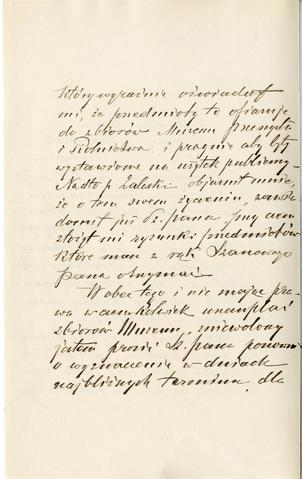 który wyraźnie oświadczył
mi, że przedmioty te ofiaruje
do zbiorów Muzeum Przemysłu
i Rolnictwa i pragnie aby były
wystawione na użytek publiczny.
Nadto p. Załuski objaśnił mnie,
że o tem swem życzeniu,
doniósł już Sz. pana, przyczem
złożył mi rysunki przedmiotów
które mam z rąk Szanownego
pana otrzymać.
Wobec tego i nie mając pra-
wa w czemkolwiek uszczuplać
zbiorów Muzeum, zniewolony
jestem prosić Sz. pana ponownie
o wyznaczenie w dniach
najbliższych terminu, dla